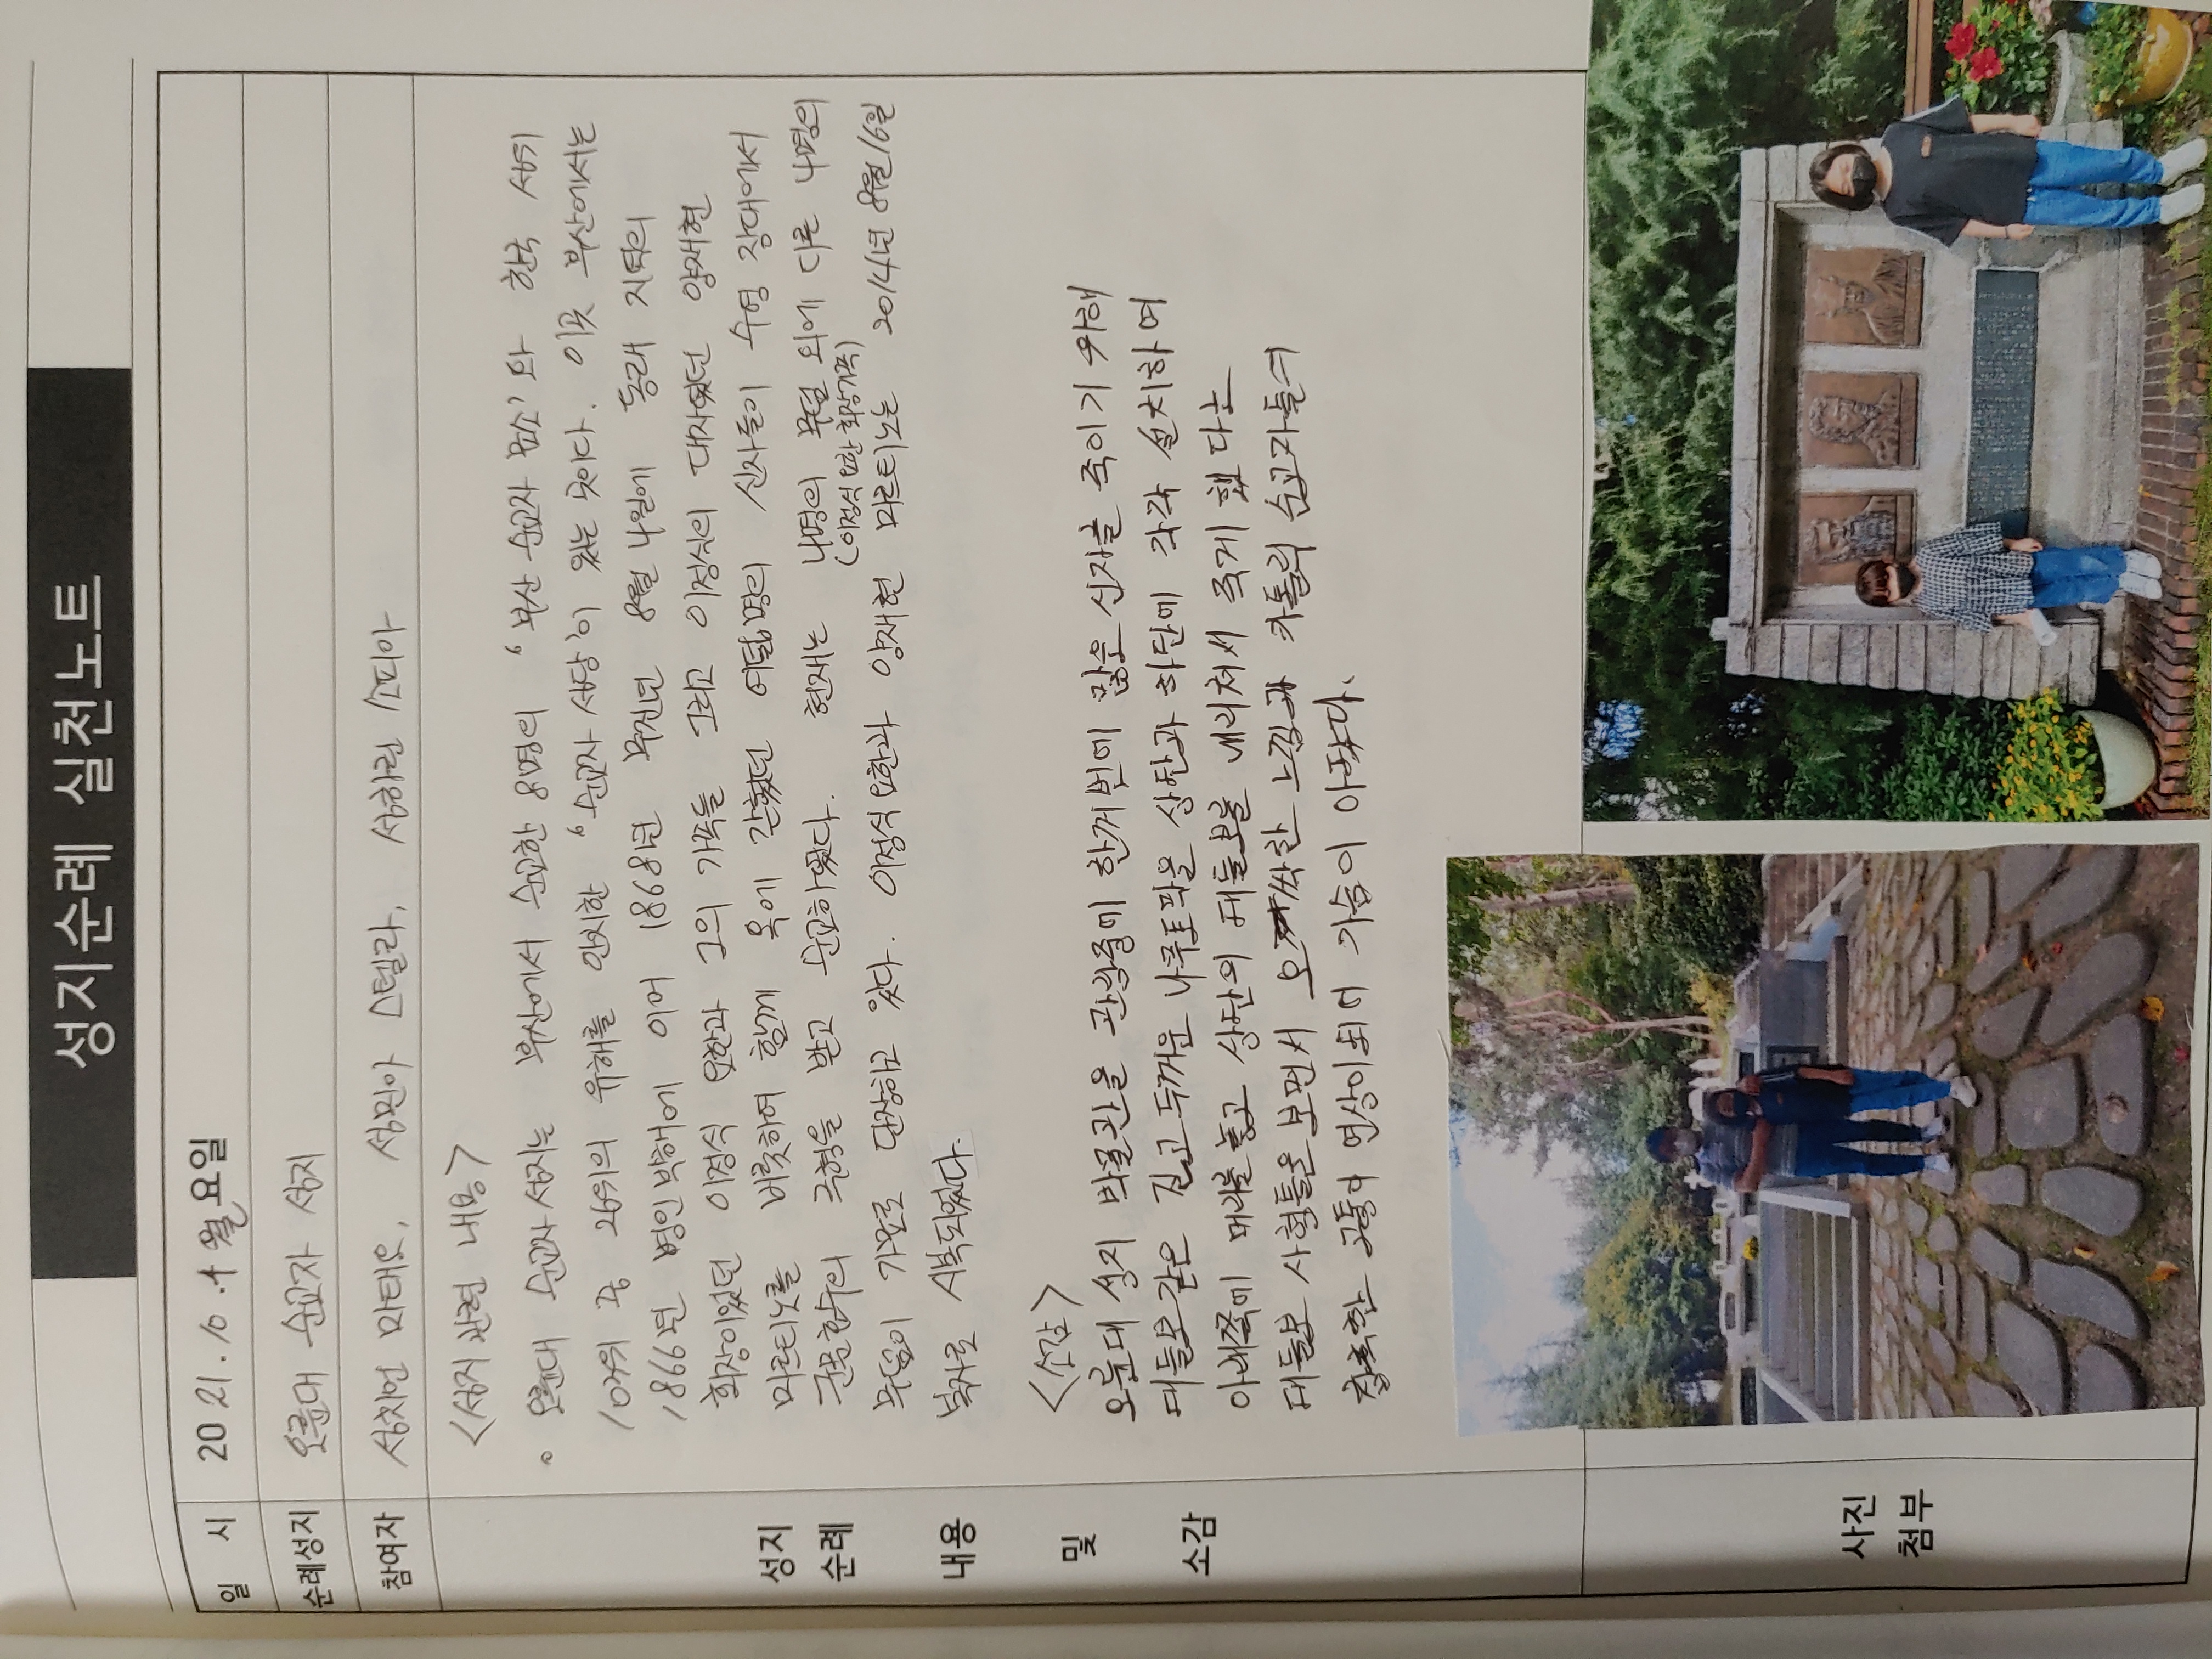 성지순례 실천노트
일 시 2021. 10. 4 월요일
순례성지 오륜대 순교자 성지
참여자 성치언 마태오, 성민아 스텔라, 성하린 소피아
성지 순례 내용 및 소감
<성지 관련 내용>
◦ 오륜대 순교자 성지는 부산에서 순교한 8명의 '부산 순교자 묘소'와 한국 성위
103위 중 26위의 유해를 안치한 '순교자 성당'이 있는 곳이다. 이곳 부산에서는
1866년 병인박해에 이어 1868년 무진년 8월 4일에 동래 지역의
회장이었던 이정식 요한과 그의 가족들 그리고 이정식의 대자였던 양재현
마르티노를 비롯하여 함께 옥에 갇혔던 여덟명의 신자들이 수영 장대에서
군문효수의 극형을 받고 순교하였다. 현재는 4명의 무덤 외에 다른 4명의
(이정식 요한 회장가족)
무덤이 가묘로 단장하고 있다. 이정식 요한과 양재현 마르티노는 2014년 8월 16일
복자로 시복되었다.
<소감>
오륜대 성지 박물관을 관람중에 한꺼번에 많은 신자를 죽이기 위해
대들보 같은 길고 두꺼운 나무토막을 상단과 하단에 각각 설치하여
아래쪽에 머리를 놓고 상단의 대들보를 내리쳐서 죽게 했다는
대들보 사형틀을 보면서 오싹한 느낌과 카톨릭 순교자들의
참혹한 고통이 연상이되어 가슴이 아팠다.
사진 첨부